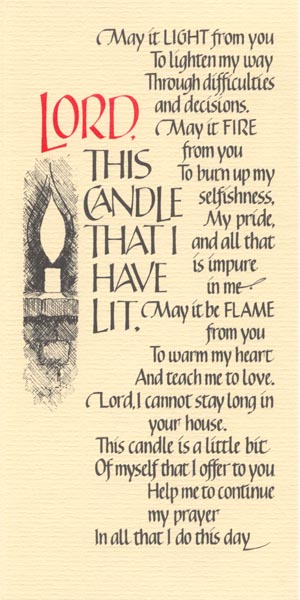 LORD,
THIS
CANDLE
THAT I
HAVE
LIT.
May it LIGHT from you
To lighten my way
Through difficulties
and decisions.
May it FIRE
from you
To burn up my
selfishness,
My pride,
and all that
is impure
in me
May it be FLAME
from you
To warm my heart
And teach me to love.
Lord, I cannot stay long in
your house.
This candle is a little bit
Of myself that I offer to you
Help me to continue
my prayer
In all that I do this day